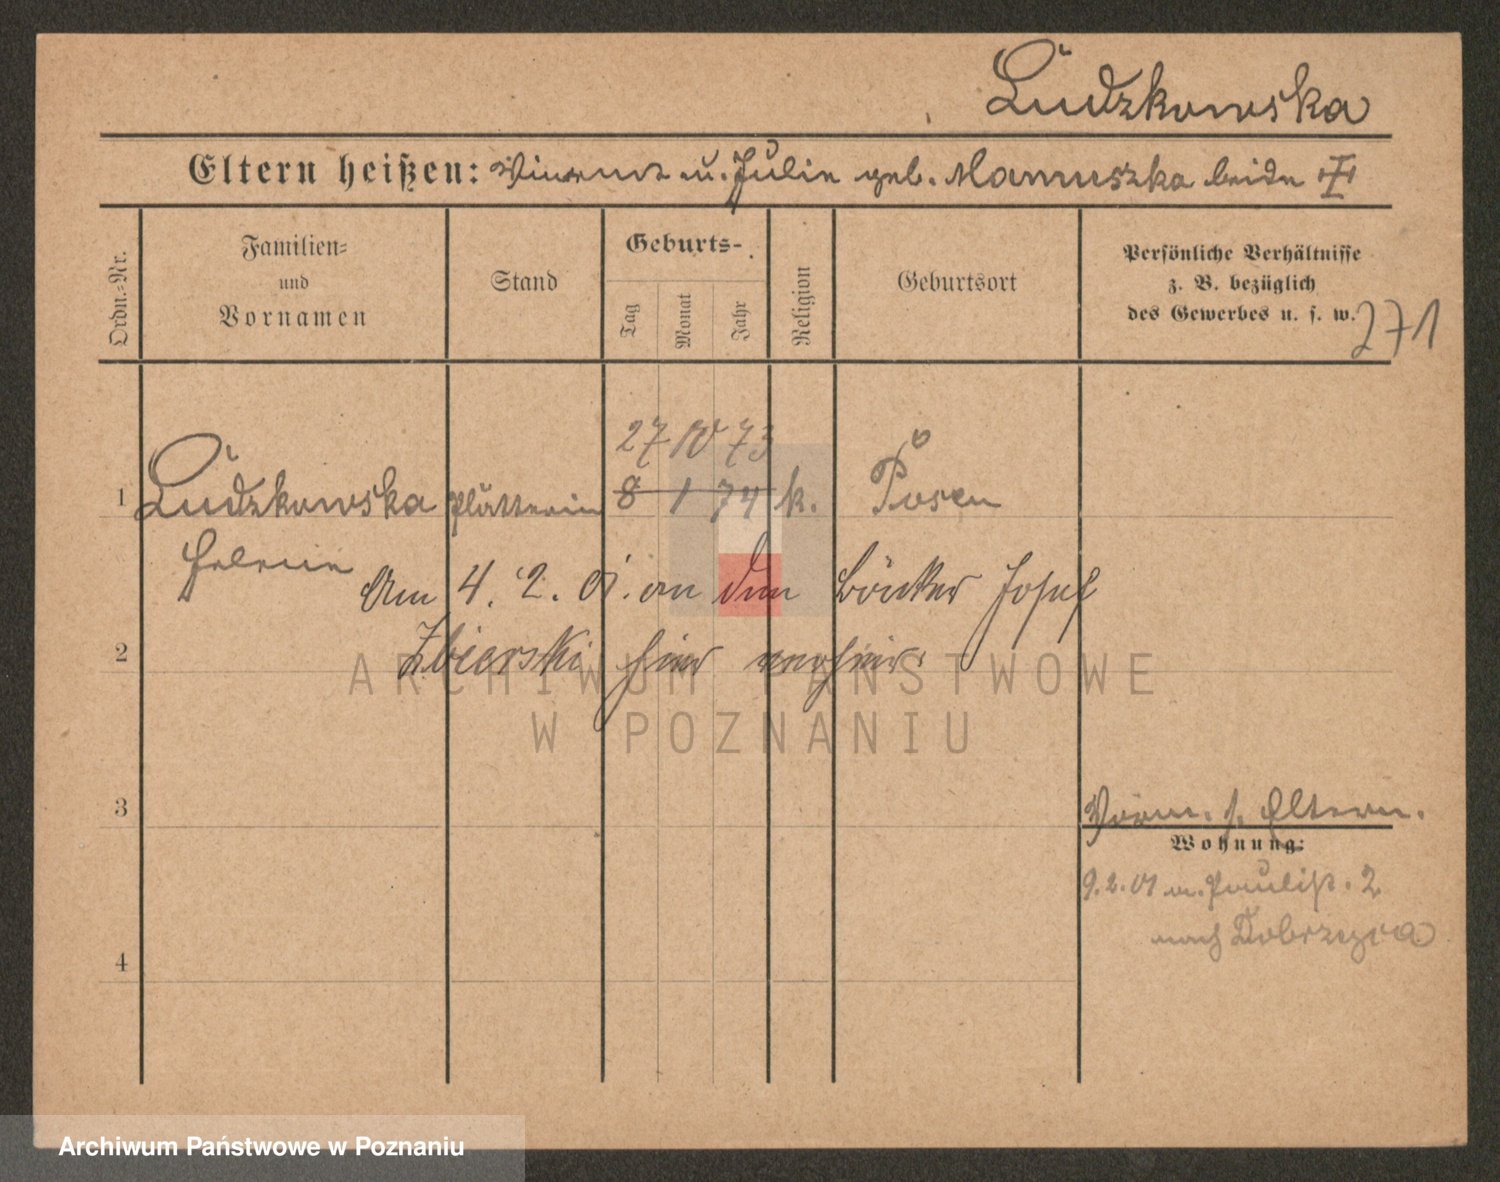 Ludzkowska
Eltern heißen: Vincent u. Julie geb. Mamuszka beide
Ordn.-Nr.
Familien-
und
Vornamen
Stand
Geburts-
Tag
Monat
Jahr
Religion
Geburtsort
Persönliche Verhältnisse
z. B. bezüglich
des Gewerbes u. s. w.
271
27 IV 73
1 Ludzkowska Plätterin 8 1 74 k. Posen
Helene
Am 4. 2. 01. an den Böttcher Josef
2 Zbierski hier verheir.
ARCHIWUM PAŃSTWOWE
W POZNANIU
3
Vorm. s. Eltern.
Wohnung:
9.2.01 v. Paulist. 2
nach Dobrzyca
4
Archiwum Państwowe w Poznaniu